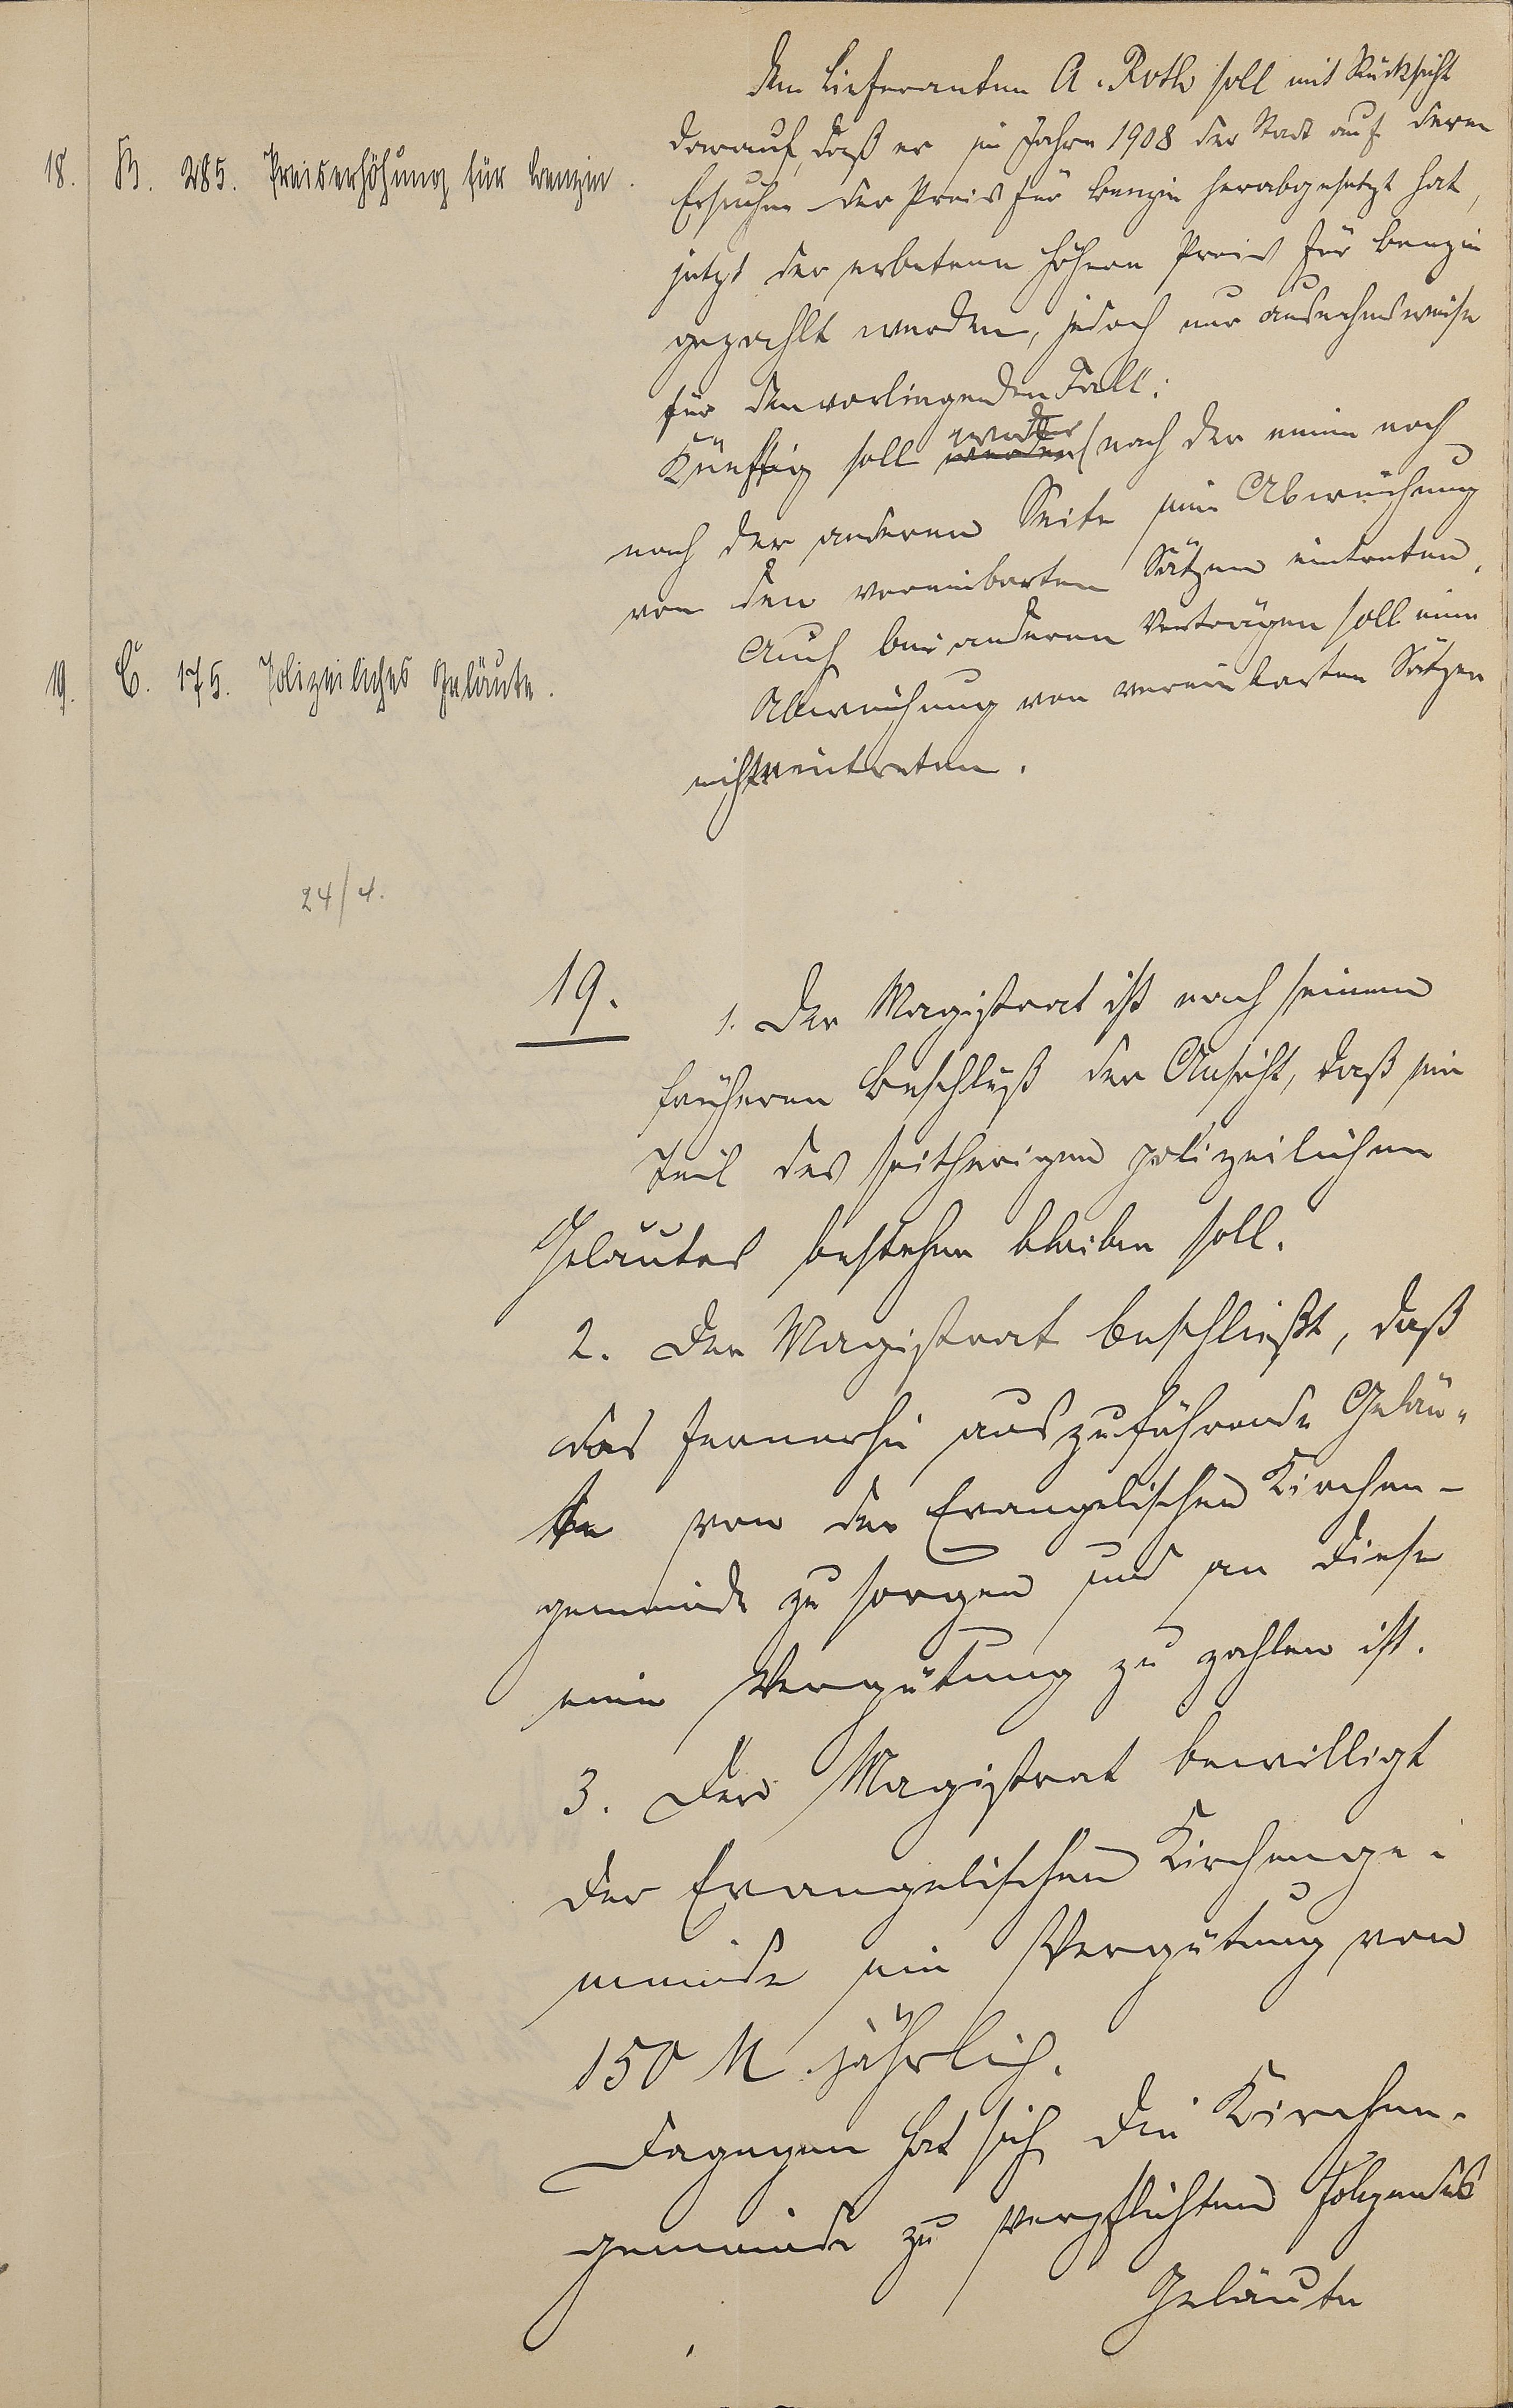 18. B. 285. Preiserhöhung für Benzin.
Dem Lieferanten A. Roth soll mit Rücksicht
darauf, daß er im Jahre 1908 der Stadt auf deren
Ersuchen der Preis für Benzin herabgesetzt hat,
jetzt der erbetene höhere Preis für Benzin
gezahlt werden, jedoch nur ausnahmsweise
für den vorliegenden Fall.
Künftig soll weder nach der einen noch
nach der anderen Seite eine Abweichung
von den vereinbarten Sätzen eintreten.
Auch bei anderen Verträgen soll eine
Abweichung von vereinbarten Sätzen
nicht eintreten.
19. C. 175. Polizeiliches Geläute.
24/4.
19. 1. Der Magistrat ist nach seinem
früheren Beschluß der Ansicht, daß ein
Teil des seitherigen polizeilichen
Geläutes bestehen bleiben soll.
2. Der Magistrat beschließt, daß
das fernerhin auszuführende Geläu-
te von der Evangelischen Kirchen-
gemeinde zu sorgen und an diese
eine Vergütung zu zahlen ist.
3. Der Magistrat bewilligt
der Evangelischen Kirchenge-
meinde eine Vergütung von
150 M. jährlich.
Dagegen hat sich die Kirchen-
gemeinde zu verpflichten folgendes
Geläute